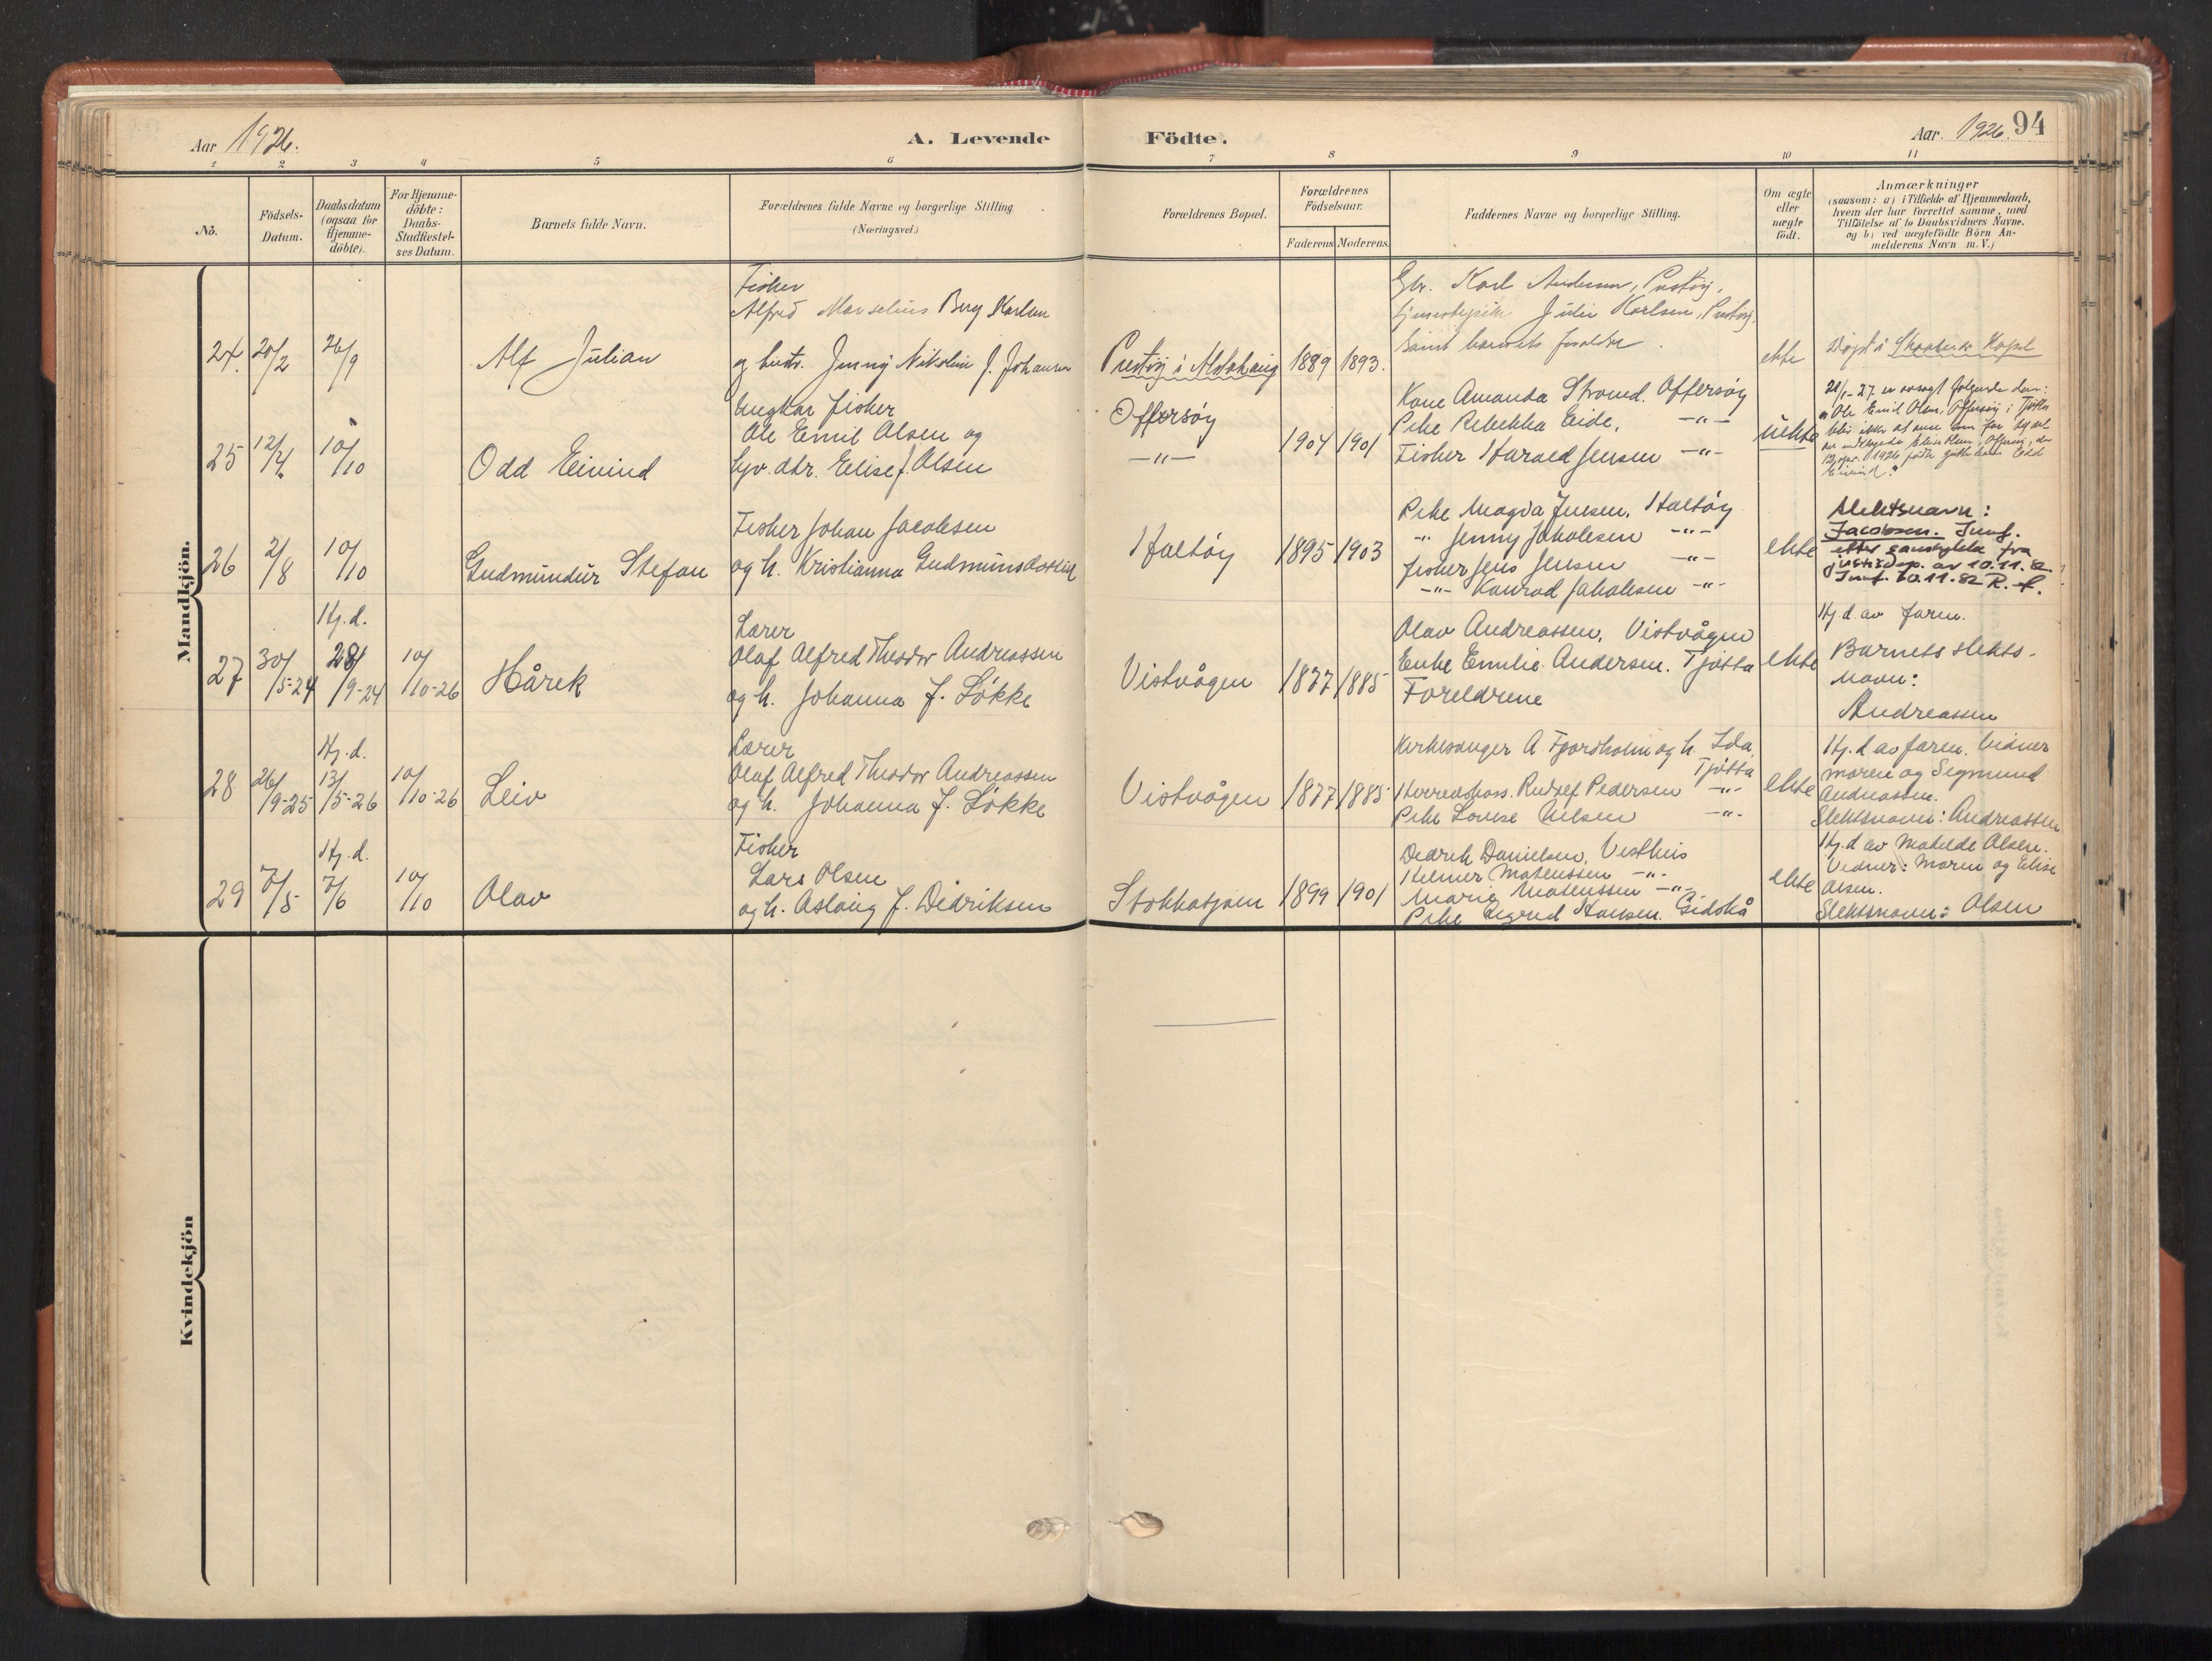 Aar 1926.
A. Levende
Födte.
Aar. 1926. 94
1 2 3 4 5 6 7 8 9 10 11
No.
Födsels-Datum.
Daabsdatum (ogsaa for Hjemme-döbte).
For Hjemme-döbte: Daabs-Stadfæstel-ses Datum.
Barnets fulde Navn.
Forældrenes fulde Navne og borgerlige Stilling
(Næringsvei.)
Forældrenes Bopæl.
Forældrenes Födselsaar.
Faderens Moderens
Faddernes Navne og borgerlige Stilling.
Om ægte eller uægte födt.
Anmærkninger
(saasom: a) i Tilfælde af Hjemmedaab,
hvem der har forrettet samme, med
Tilföielse af to Daabsvidners Navne.
og b) ved uægtefödte Börn An-
melderens Navn m. V.)
Mandkjön.
24. 20/2 26/9
Alf Julian
Fisker
Alfred Marselius Berg Karlsen
og hustr. Jenny Nikoline J. Johansen
Prestöy i Alstahaug
1889 1893.
Gbr. Karl Andersen, Prestöy,
Julie Karlsen, Prestöy.
samt barnets foreldre.
ekte
Döpt i Skaalvær Kapel
25 12/4 10/10
Odd Eivind
Ungkar fisker
Ole Emil Olsen og
Gjv. dtr. Elise J. Olsen
Offersöy
—"—
1904 1901
Kone Amanda Strand. Offersöy
Pike Rebekka Eide, —"—
Fisker Harald Jensen —"—
uekte
21/1-27 er avsagt følgende dom:
"Ole Emil Olsen, Offersøy i Tjøtta
blir ikke at anse som far til det
av Elise Olsen, Offersøy, den
12 apr. 1926 fødte guttebarn Odd
Eivind."
26 2/8 10/10
Gudmundur Stefan
Fisker Johan Jacobsen
og h. Kristianna Gudmunsdottir
Haltöy
1895 1903
Pike Magda Jensen, Haltöy
-"- Jenny Jakobsen -"-
fisker Jens Jensen -"-
-"- Konrad Jakobsen -"-
ekte
Slektsnavn:
Jacobsen. Innf.
etter samtykke fra
justisdep. av 10.11.82.
Innf. 10.11.82 R.f.
27 30/5-24
Hj.d.
28/9-24 10/10-26
Hårek
Lærer
Olaf Alfred Theodor Andreassen
og h. Johanna f. Løkke
Vistvågen
1877 1885
Olav Andreassen, Vistvågen
Enke Emilie Andersen. Tjøtta
Foreldrene
ekte
Hj.d av faren.
Barnets slekts-
navn:
Andreassen
28 26/9-25
Hj.d.
13/5-26 10/10-26
Leiv
Lærer
Olaf Alfred Theodor Andreassen
og h. Johanna f. Løkke
Vistvågen
1877 1885
Kirkesanger A. Fjordholm og h. Ida,
Tjøtta
Herredskass. Rudolf Pedersen -"-
Pike Lovise Nilsen -"-
ekte
Hj.d av faren. Vidner
moren og Sigmund
Andreassen.
Slektsnavn: Andreassen
29 7/5
Hj.d.
7/6 10/10
Olav
Fisker
Lars Olsen
og h. Aslaug f. Didriksen
Stokkasjøen
1899 1901
Didrik Danielsen, Vesthus
Hilmer Matenssen -"-
Marie Matenssen -"-
Pike Sigrid Hansen. Gidskå
ekte
Hj.d av Matilde Olsen.
Vidner: Moren og Elise
Olsen.
Slektsnavn: Olsen
Kvindekjön